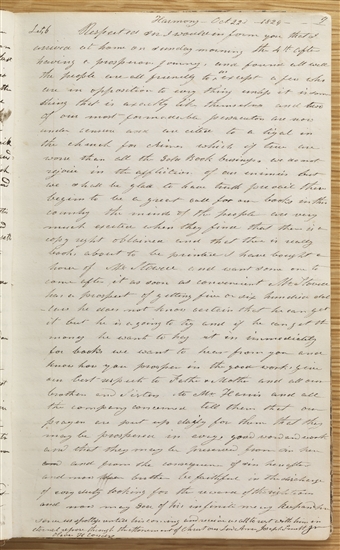 Harmony Oct 22d 1829 — 9
Respected Sir I would inform you that I
arrived at home on sunday morning the 4th after
having a prosperous journey, and found all well
the people are all friendly to us except a few who
are in opposition to every thing unless it is some
thing that is exactly like themselves and two
of our most formadable persecutors are now
under censure and are cited to a tryal in
the church for crimes which if true are
worse than all the Gold Book business. we do not
rejoice in the affliction of our enimies but
we shall be glad to have truth prevail there
begins to be a great call for our books in this
country the minds of the people are very
much excited when they find that there is a
copy right obtained and that there is really
books about to be printed I have bought a
horse of Mr Stowell and want some one to
come after it as soon as convenient Mr Stowell
has a prospect of getting five or six hundred dol
lars he does not know certain that he can get
it but he is a going to try and if he can get the
money he want to pay it in immediately
for books we want to hear from you and
know how you prosper in the good work, give
our best respects to Father & Mother and all our
brothers and Sisters, to Mr Harris and all
the company concerned tell them that our
prayers are put up daily for them that they
may be prospered in every good word and work
and that they may be preserved from sin here
and from the consequence of sin hereafter
and now brother be faithful in the discharge
of every duty looking for the reward of the righteous
and now may God of his infinite mercy keep and preserve
us spotless untill his coming and receive us all to rest with him in
eternal repose through the attonement of Christ our Lord Amen Joseph Smith Jr
Oliver H Cowdery